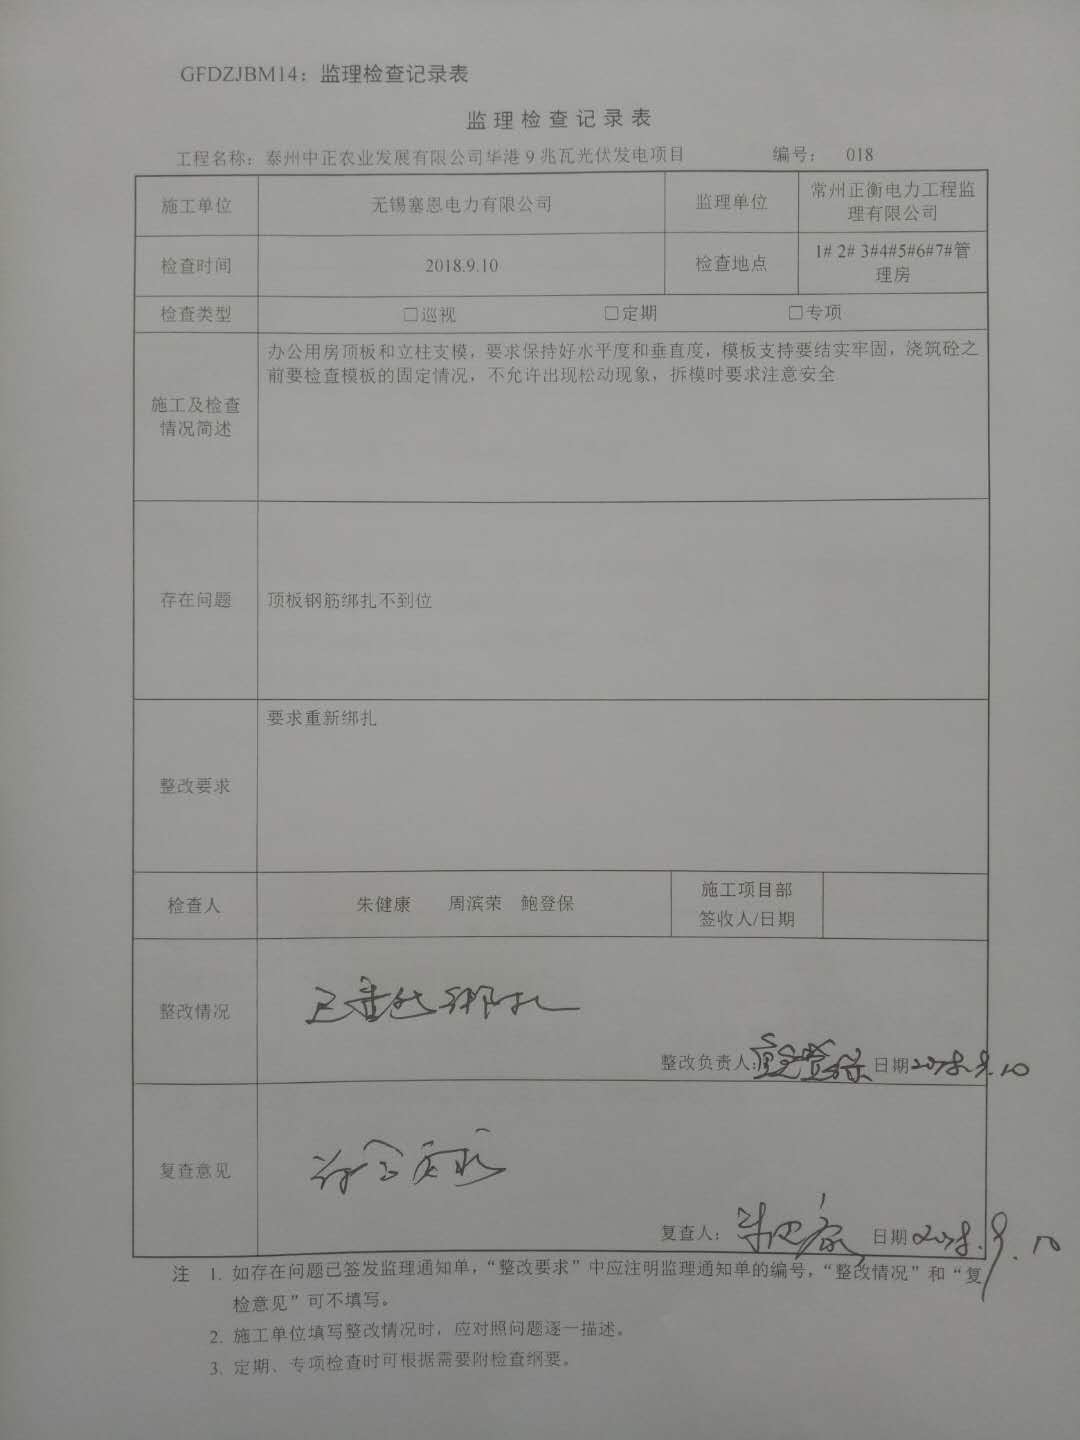 GFDZJBM14：监理检查记录表
监理检查记录表
工程名称：泰州中正农业发展有限公司华港9兆瓦光伏发电项目 编号： 018
施工单位 无锡塞恩电力有限公司 监理单位 常州正衡电力工程监
理有限公司
检查时间 2018.9.10 检查地点 1# 2# 3#4#5#6#7#管
理房
检查类型 □巡视 □定期 □专项
施工及检查
情况简述
办公用房顶板和立柱支模，要求保持好水平度和垂直度，模板支持要结实牢固，浇筑砼之
前要检查模板的固定情况，不允许出现松动现象，拆模时要求注意安全
存在问题 顶板钢筋绑扎不到位
整改要求 要求重新绑扎
检查人 朱健康 周滨荣 鲍登保 施工项目部
签收人/日期
整改情况 已重新绑扎
整改负责人：鲍登保 日期2018.9.10
复查意见 符合要求
复查人：朱健康 日期2018.9.10
注 1. 如存在问题已签发监理通知单，“整改要求”中应注明监理通知单的编号，“整改情况”和“复
检意见”可不填写。
2. 施工单位填写整改情况时，应对照问题逐一描述。
3. 定期、专项检查时可根据需要附检查纲要。